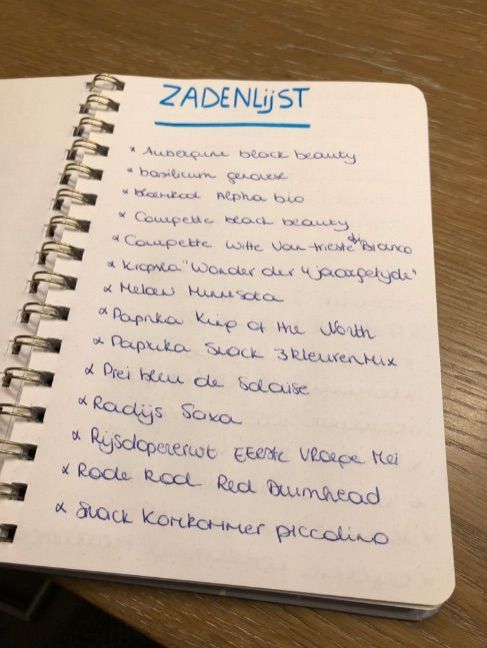 ZADENLijST
* Aubergine black beauty
* basilicum genovese
* bloemkool Alpha bio
* Courgette black beauty
* Courgette witte van trieste Bianco
* Kropsla "Wonder der 4 jaargetijde"
* Meloen Minnesota
* Paprika King of the North
* Paprika Snack 3kleurenmix
* Prei bleu de Solaise
* Radijs Saxa
* Rijsdoperwt EErste VRoege Mei
* Rode Kool Red Drumhead
* Snack Komkommer piccolino